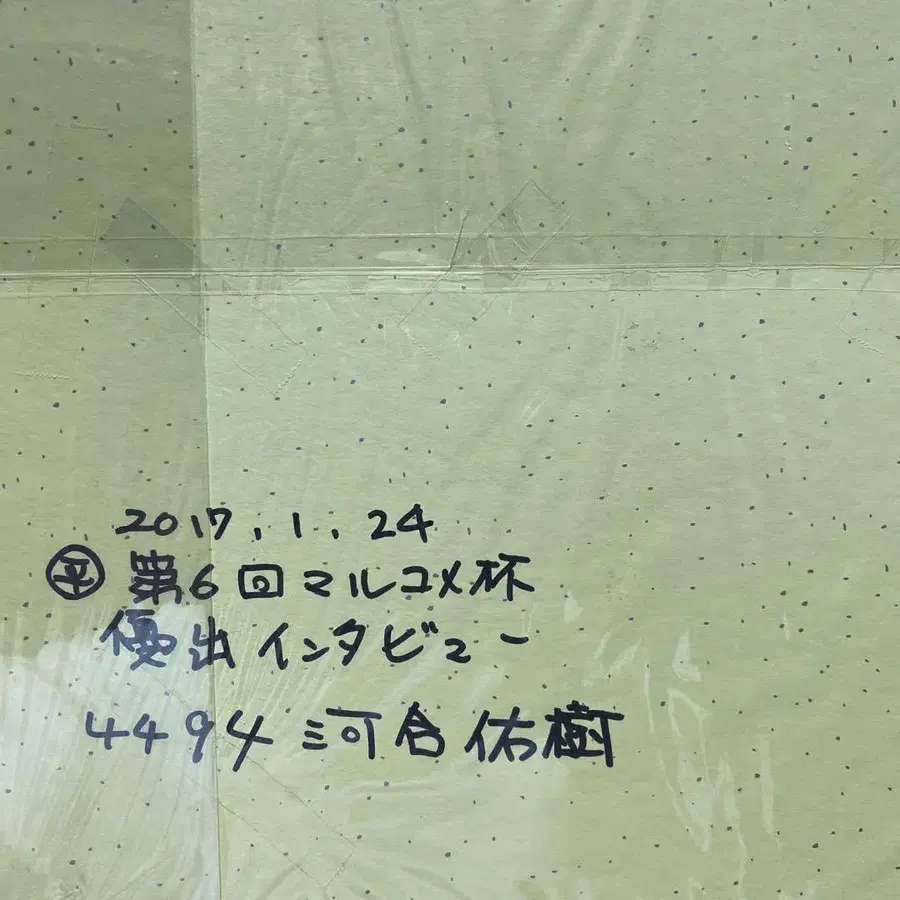 2017.1.24
㊥ 第6回マルコメ杯
優出インタビュー
4494 河合佑樹